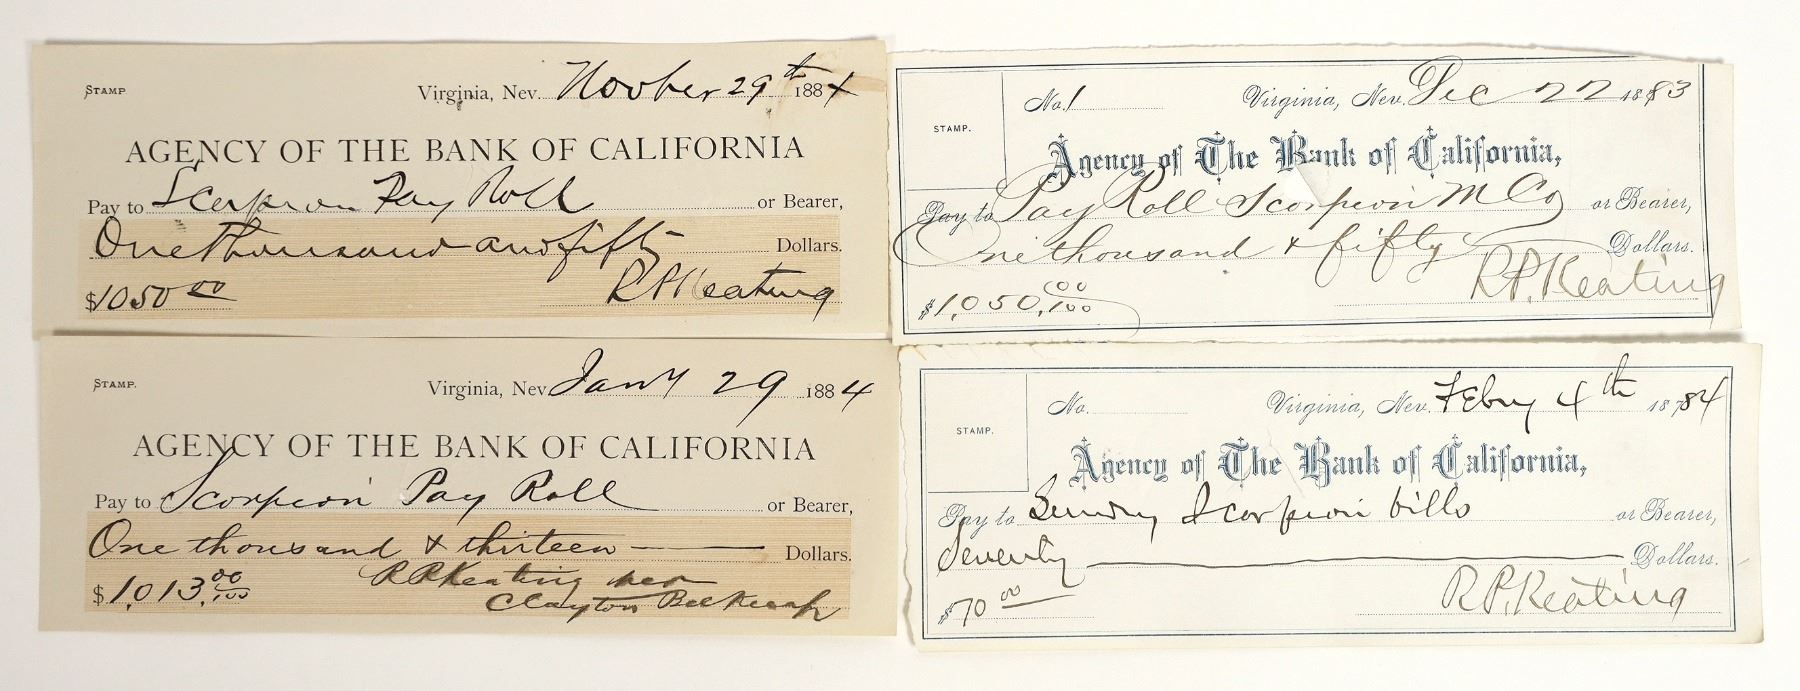 STAMP
Virginia, Nev. Novber 29th 1884
AGENCY OF THE BANK OF CALIFORNIA
Pay to Scorpion Pay Roll or Bearer,
One thousand and fifty Dollars.
$1050 00
R P Keating
No. 1 Virginia, Nev. Dec 22 1883
STAMP.
Agency of The Bank of California,
Pay to Pay Roll Scorpion M Co or Bearer,
One thousand & fifty Dollars.
$1,050,00/100
R. P. Keating
STAMP.
Virginia, Nev. Jany 29 1884
AGENCY OF THE BANK OF CALIFORNIA
Pay to Scorpion Pay Roll or Bearer,
One thousand & thirteen Dollars.
$1,013.00/100
R P Keating per
Clayton
No. Virginia, Nev. Febry 4th 18784
STAMP.
Agency of The Bank of California,
Pay to Sundry Scorpion bills or Bearer,
Seventy Dollars.
$70 00
R P. Keating